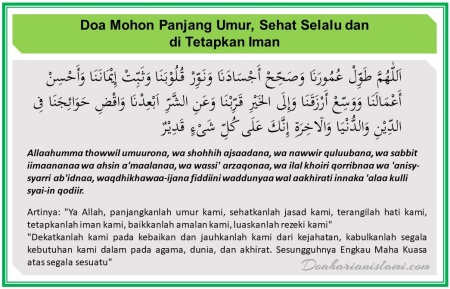 Doa Mohon Panjang Umur, Sehat Selalu dan
di Tetapkan Iman
اَللّٰهُمَّ طَوِّلْ عُمُوْرَنَا وَصَحِّحْ أَجْسَادَنَا وَنَوِّرْ قُلُوْبَنَا وَثَبِّتْ إِيْمَانَنَا وَأَحْسِنْ
أَعْمَالَنَا وَوَسِّعْ أَرْزَقَنَا وَإِلَى الْخَيْرِ قَرِّبْنَا وَعَنِ الشَّرِّ أَبْعِدْنَا وَاقْضِ حَوَائِجَنَا فِى
الدِّيْنِ وَالدُّنْيَا وَالْآخِرَةِ إِنَّكَ عَلَى كُلِّ شَيْءٍ قَدِيْرٌ
Allaahumma thowwil umuurona, wa shohhih ajsaadana, wa nawwir quluubana, wa sabbit
iimaananaa wa ahsin a'maalanaa, wa wassi' arzaqonaa, wa ilal khoiri qorribnaa wa 'anisy-
syarri ab'idnaa, waqdhikhawaa-ijana fiddiini waddunyaa wal aakhirati innaka 'alaa kulli
syai-in qodiir.
Artinya: "Ya Allah, panjangkanlah umur kami, sehatkanlah jasad kami, terangilah hati kami,
tetapkanlah iman kami, baikkanlah amalan kami, luaskanlah rezeki kami"
"Dekatkanlah kami pada kebaikan dan jauhkanlah kami dari kejahatan, kabulkanlah segala
kebutuhan kami dalam pada agama, dunia, dan akhirat. Sesungguhnya Engkau Maha Kuasa
atas segala sesuatu"
Doaharianislami.com